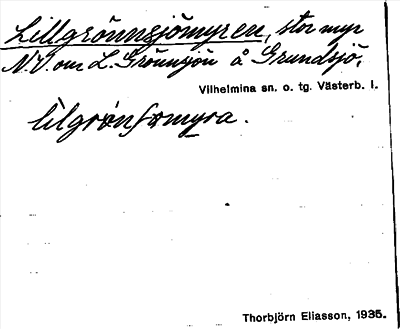 Lillgrönnsjömyren, stor myr
N.V. om L. Grönnsjön å Grundsjö,
Vilhelmina sn. o. tg. Västerb. l.
lilgrønſømyra.
Thorbjörn Eliasson, 1935.